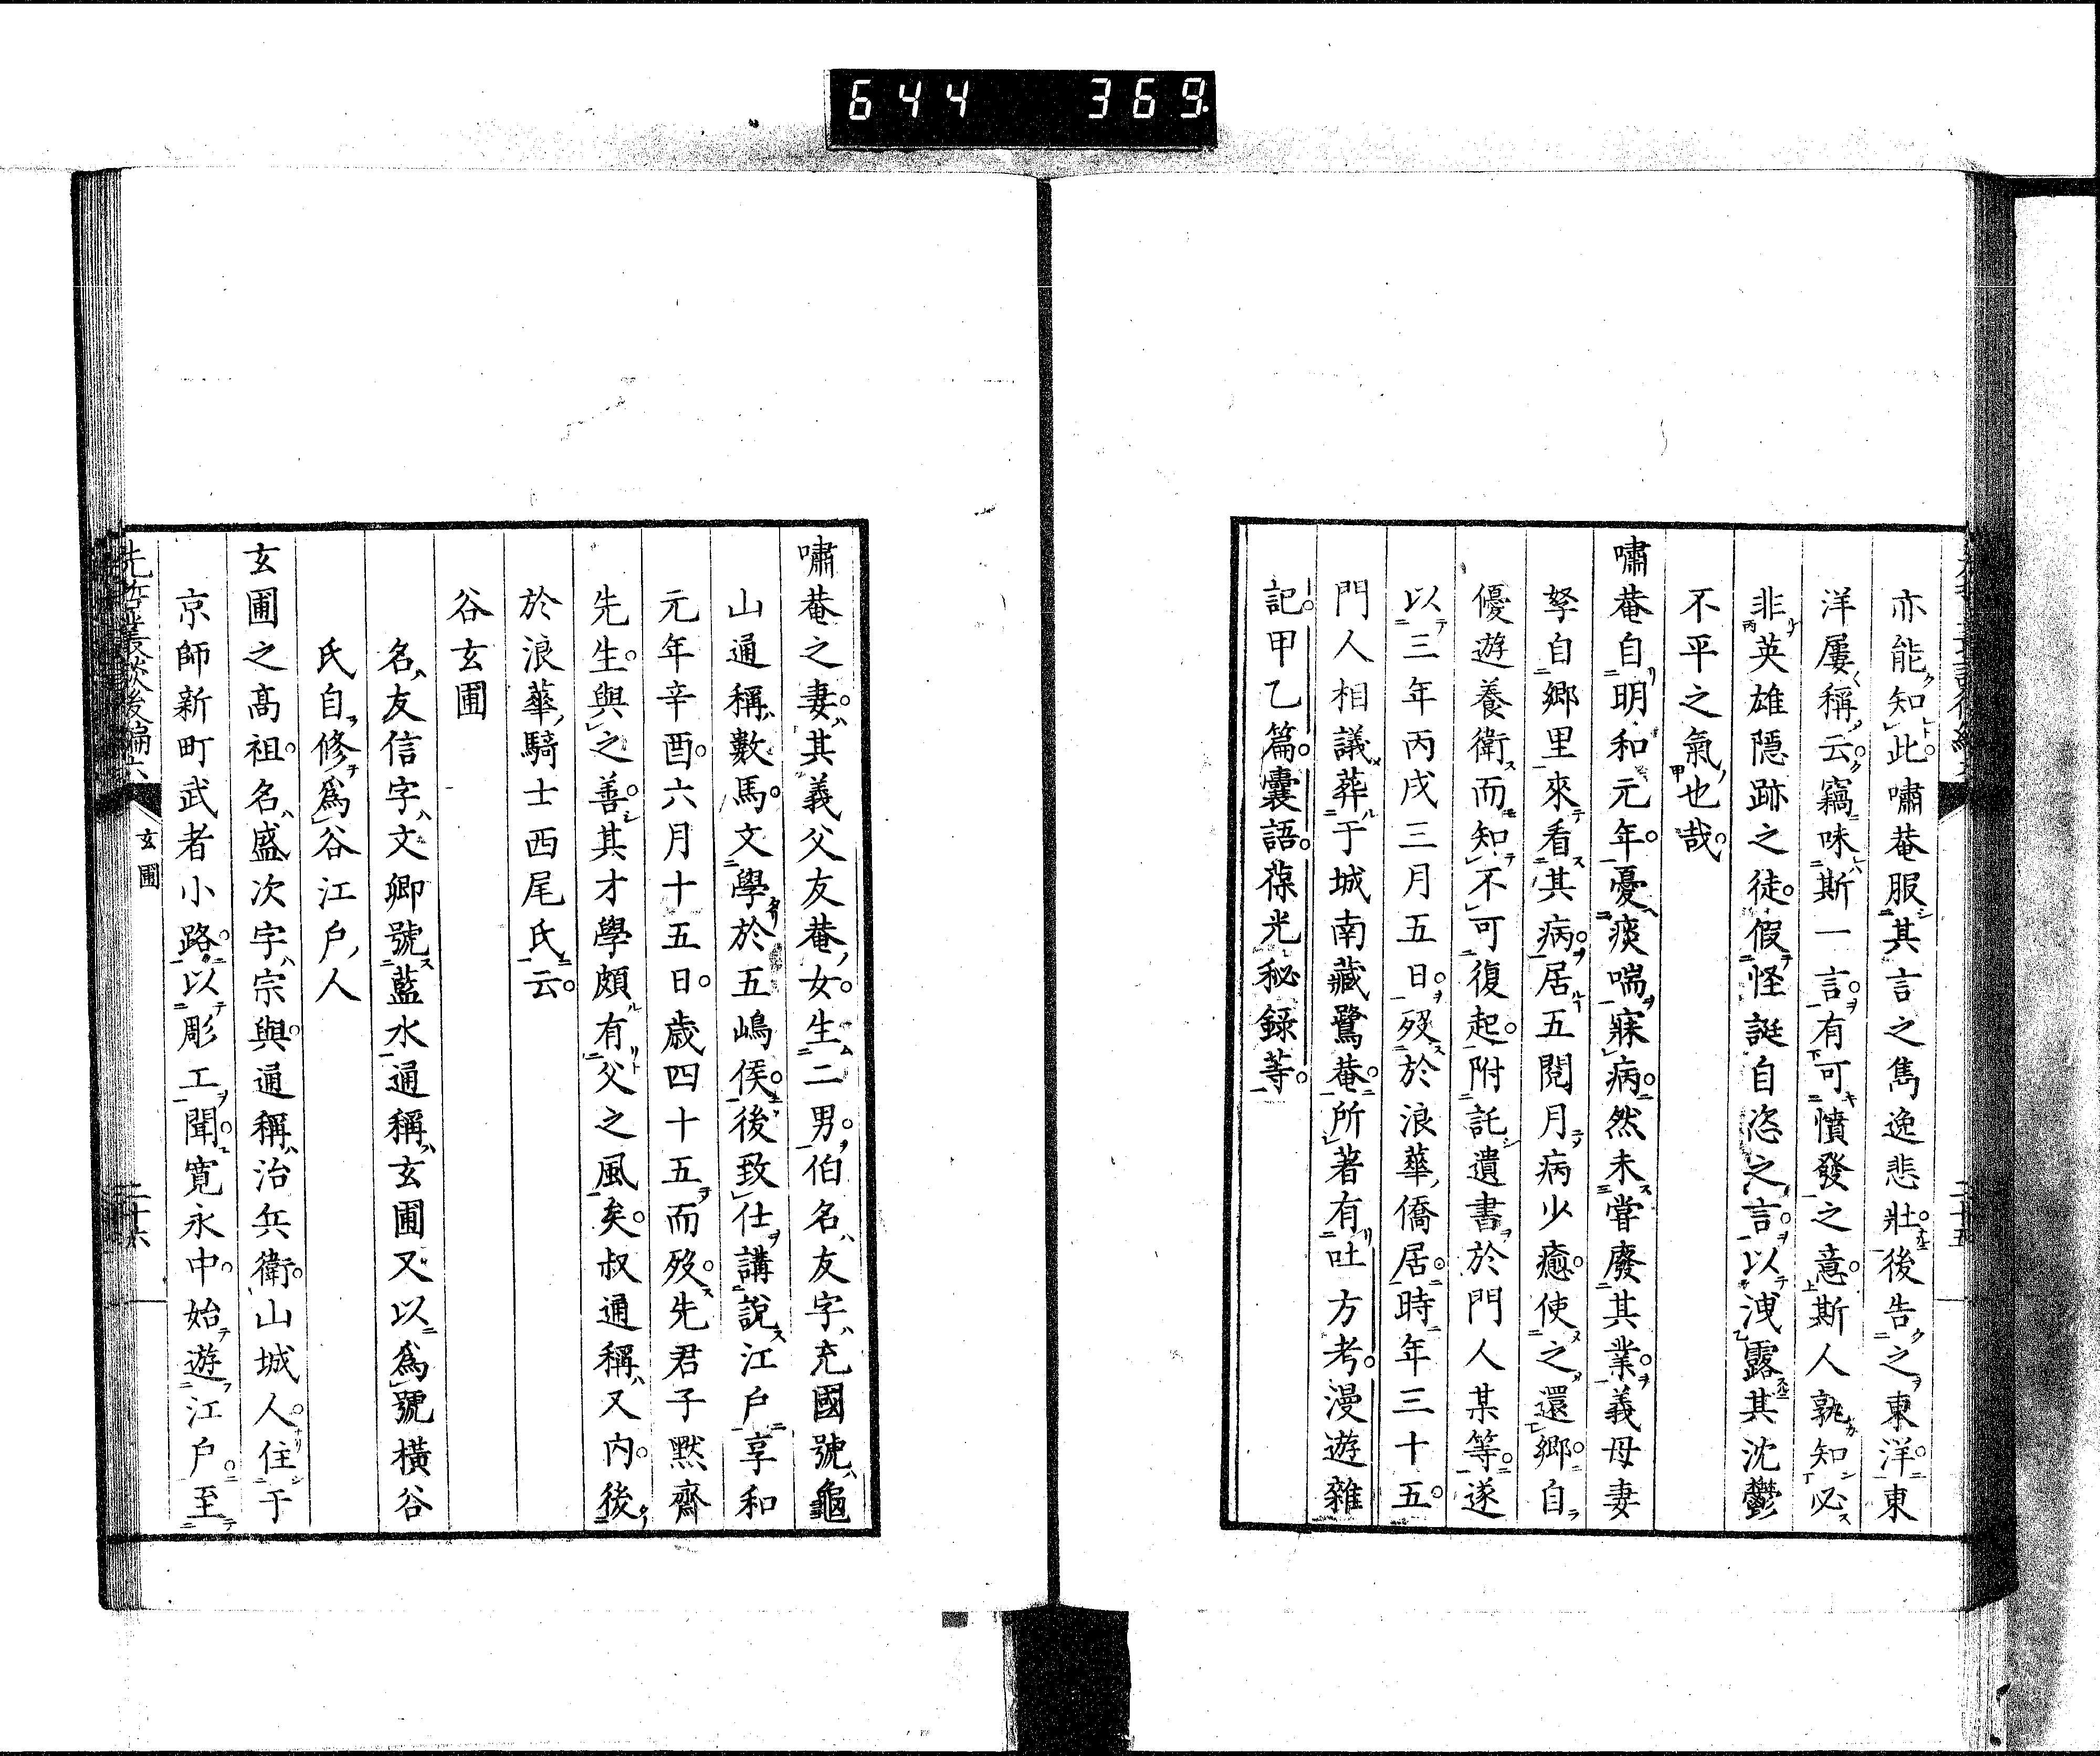 644 369
亦能知此嘯菴服其言之雋逸悲壯後告之東洋東
洋屢稱云竊味斯一言有可憤發之意斯人孰知必
非英雄隱跡之徒假怪誕自恣之言以洩露其沈鬱
不平之氣也哉
嘯菴自明和元年憂痰喘寐病然未嘗廢其業義母妻
孥自鄉里來看其病居五閱月病少癒使之還鄉自
優遊養衛而知不可復起附託遺書於門人某等遂
以三年丙戌三月五日歿於浪華僑居時年三十五
門人相議葬于城南藏鷺菴所著有吐方考漫遊雜
記甲乙篇囊語葆光秘録等
嘯菴之妻其義父友菴女生二男伯名友字充國號龜
山通稱數馬文學於五嶋侯後致仕講說江戶享和
元年辛酉六月十五日歲四十五而歿先君子默齋
先生與之善其才學頗有父之風矣叔通稱又內後
於浪華騎士西尾氏云
谷玄圃
名友信字文卿號藍水通稱玄圃又以為號橫谷
氏自修為谷江戶人
玄圃之高祖名盛次字宗與通稱治兵衛山城人住于
京師新町武者小路以彫工聞寬永中始遊江戶至
先哲叢談後編六 玄圃 二十六